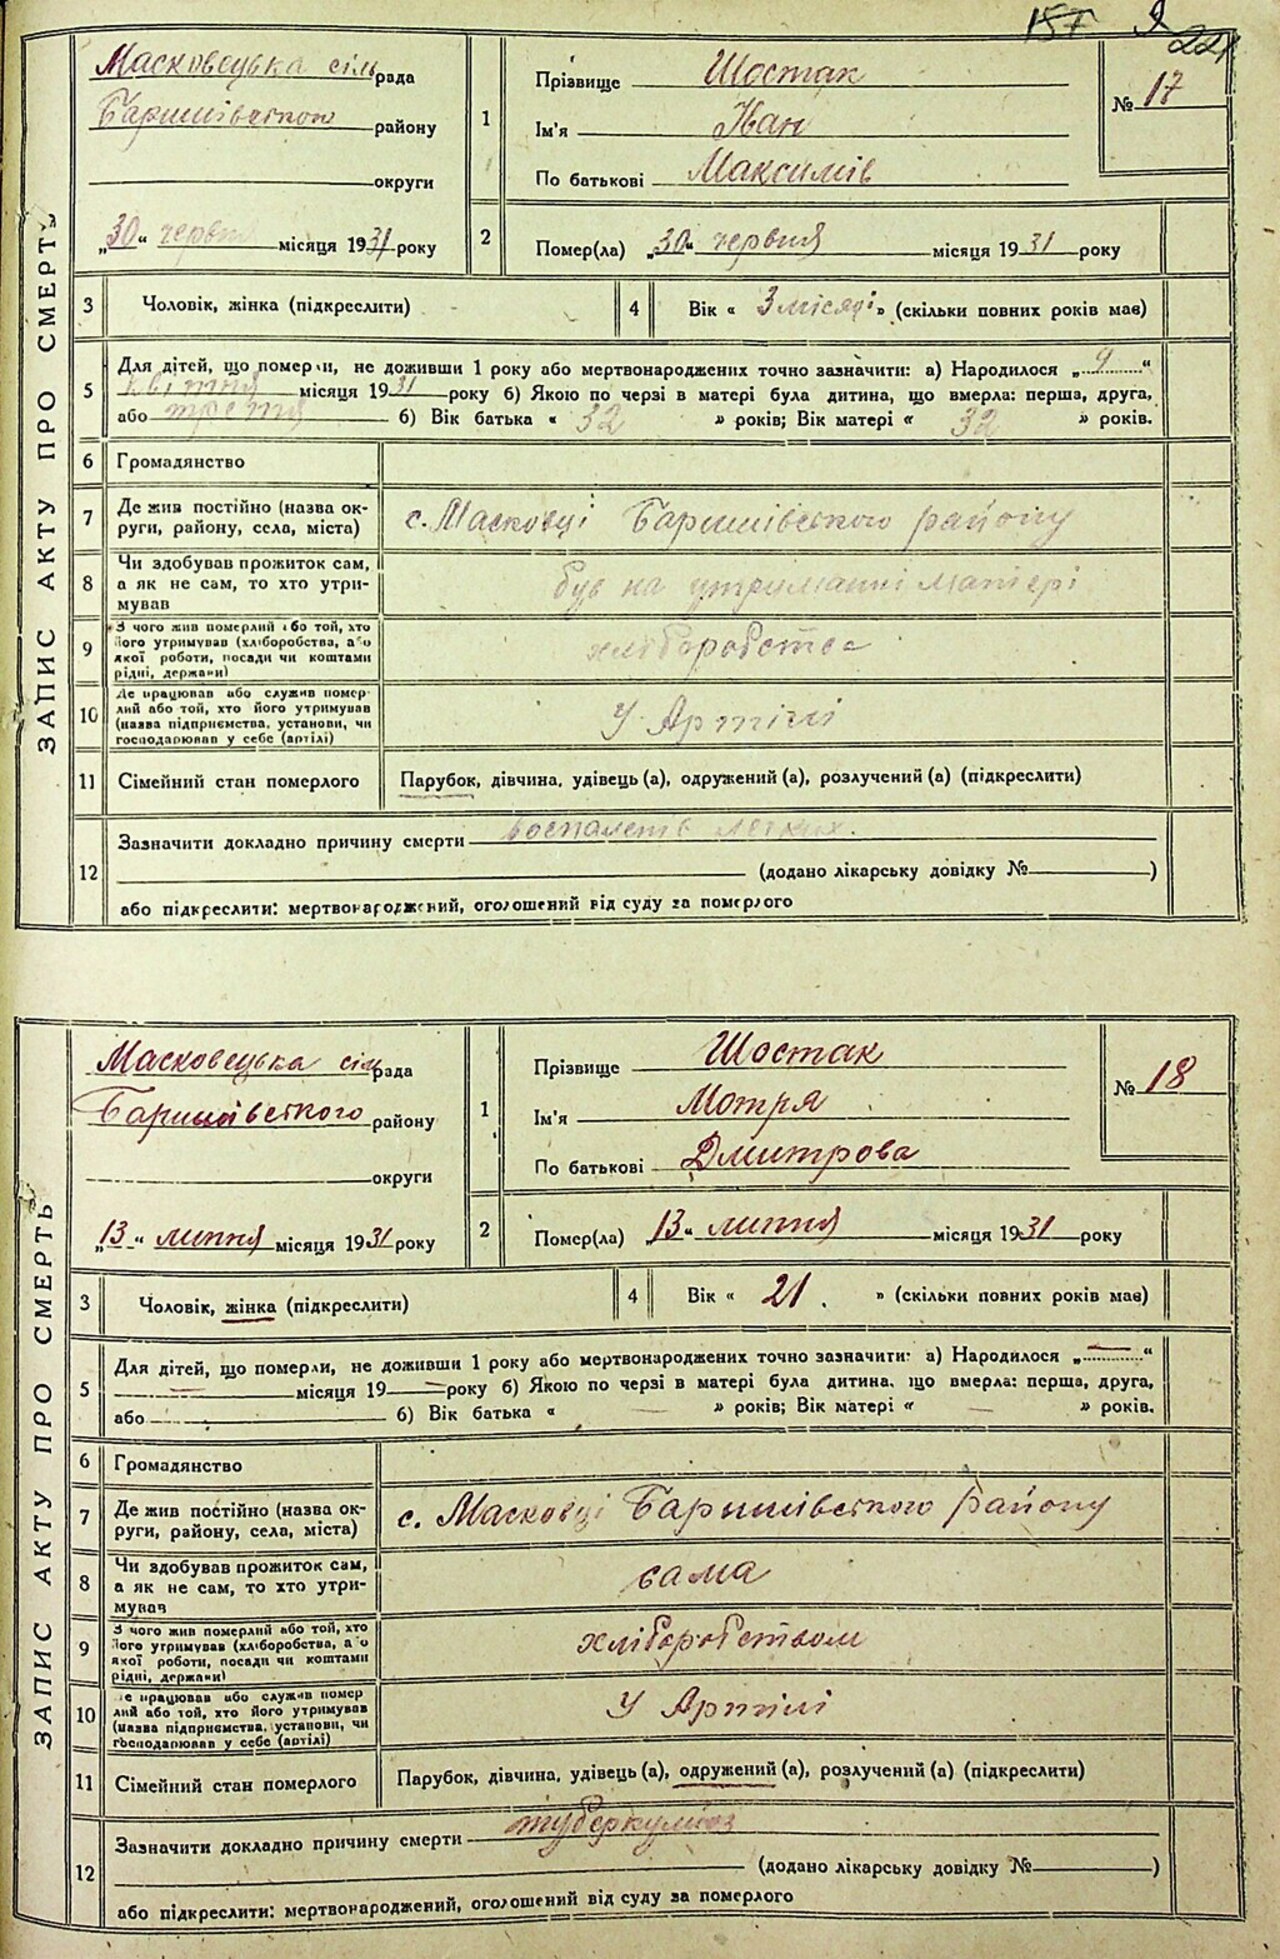 157 22
ЗАПИС АКТУ ПРО СМЕРТЬ
Масковецька сільрада
Баришівського району
округи
„30“ червня місяця 1931 року
1
Прізвище Шостак
Ім'я Іван
По батькові Максимів
№ 17
2
Помер(ла) „30“ червня місяця 1931 року
3 Чоловік, жінка (підкреслити)
4 Вік « 3 місяці » (скільки повних років має)
5
Для дітей, що померли, не доживши 1 року або мертвонароджених точно зазначити: а) Народилося „4“
квітня місяця 1931 року б) Якою по черзі в матері була дитина, що вмерла: перша, друга,
або третя б) Вік батька « 32 » років; Вік матері « 32 » років.
6 Громадянство
7
Де жив постійно (назва ок-
руги, району, села, міста)
с. Масковці Баришівського району
8
Чи здобував прожиток сам,
а як не сам, то хто утри-
мував
був на утриманні матері
9
З чого жив померлий або той, хто
його утримував (хліборобства, або
якої роботи, посади чи коштами
рідні, держави)
хліборобства
10
Де працював або служив помер-
лий або той, хто його утримував
(назва підприємства, установи, чи
господарював у себе (артілі)
У Артілі
11 Сімейний стан померлого
Парубок, дівчина, удівець (а), одружений (а), розлучений (а) (підкреслити)
12
Зазначити докладно причину смерти воспалеть легких.
(додано лікарську довідку № )
або підкреслити: мертвонароджений, оголошений від суду за померлого
ЗАПИС АКТУ ПРО СМЕРТЬ
Масковецька сільрада
Баришівського району
округи
„13“ липня місяця 1931 року
1
Прізвище Шостак
Ім'я Мотря
По батькові Дмитрова
№ 18
2
Помер(ла) „13“ липня місяця 1931 року
3 Чоловік, жінка (підкреслити)
4 Вік « 21. » (скільки повних років має)
5
Для дітей, що померли, не доживши 1 року або мертвонароджених точно зазначити: а) Народилося „—“
— місяця 19— року б) Якою по черзі в матері була дитина, що вмерла: перша, друга,
або б) Вік батька « — » років; Вік матері « — » років.
6 Громадянство
7
Де жив постійно (назва ок-
руги, району, села, міста)
с. Масковці Баришівського району
8
Чи здобував прожиток сам,
а як не сам, то хто утри-
мував
сама
9
З чого жив померлий або той, хто
його утримував (хліборобства, або
якої роботи, посади чи коштами
рідні, держави)
хліборобством
10
Де працював або служив помер
лий або той, хто його утримував
(назва підприємства, установи, чи
господарював у себе (артілі)
У Артілі
11 Сімейний стан померлого
Парубок, дівчина, удівець (а), одружений (а), розлучений (а) (підкреслити)
12
Зазначити докладно причину смерти туберкульоз
(додано лікарську довідку № )
або підкреслити: мертвонароджений, оголошений від суду за померлого